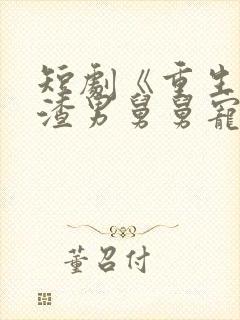 短劇《重生
渣男舅舅寵
董召付